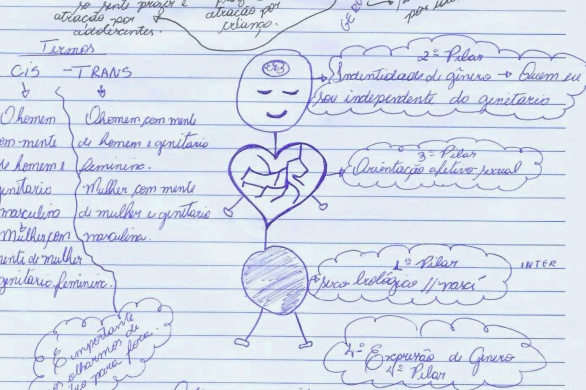 só sente prazer e
atração por
adolescentes.
atração por
criança.
por
Termos
CIS - TRANS
O homem
com mente
de homem e
genitario
masculino
Mulher, com
mente de mulher
genitario feminino.
O homem, com mente
de homem e genitario
feminino.
Mulher com mente
de mulher e genitario
masculino.
É importante
olharmos de
para fora.
2º Pilar
Indentidade de gênero → Quem eu
sou independente do genitario
3º Pilar
Orientação afetivo-sexual
1º Pilar
sexo biológico // nasci
INTER
4º Expressão de Gênero
4º Pilar